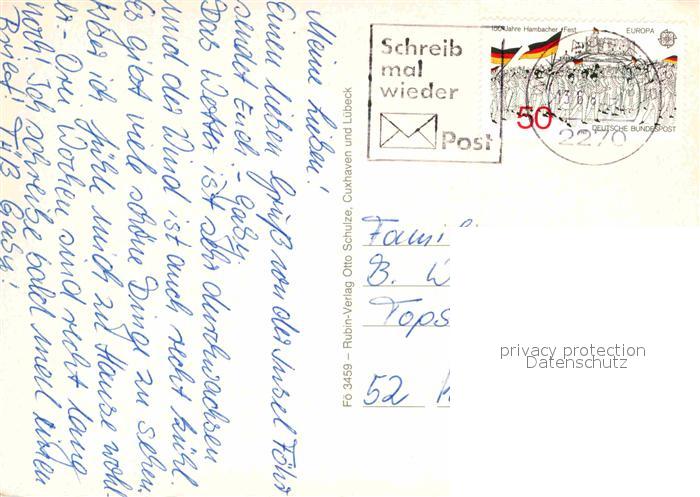 Meine Lieben!
Einen lieben Gruß von der Insel Föhr
sendet Euch - Gaby.
Das Wetter ist sehr durchwachsen
und der Wind ist auch recht kühl.
Es gibt viele schöne Dinge zu sehen.
Aber ich fühle mich zu Hause wohl-
er - Drei Wochen sind recht lang
noch! Ich schreibe bald mal einen
Brief! Tüß Gaby!
Fö 3459 – Rubin-Verlag Otto Schulze, Cuxhaven und Lübeck
Schreib
mal
wieder
Post
150 Jahre Hambacher Fest
EUROPA
50
DEUTSCHE BUNDESPOST
13.6.8
2270
Famil
B. W
Tops
52
privacy protection
Datenschutz